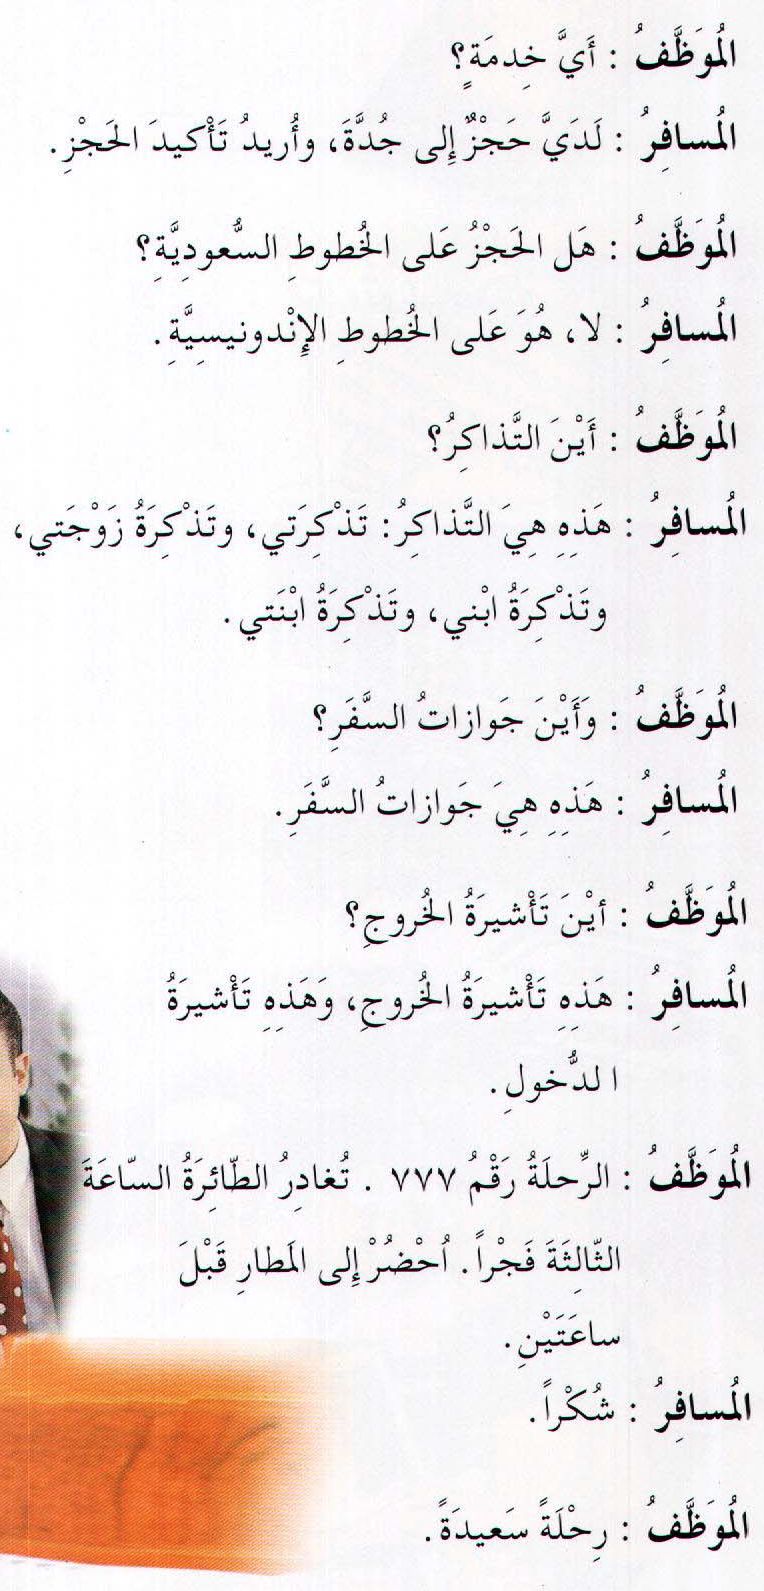 المُوَظَّفُ : أَيَّ خِدمَةٍ؟
المُسافِرُ : لَدَيَّ حَجْزٌ إِلى جُدَّةَ، وأُريدُ تَأْكيدَ الحَجْزِ.
المُوَظَّفُ : هَل الحَجْزُ عَلى الخُطوطِ السُّعودِيَّةِ؟
المُسافِرُ : لا، هُوَ عَلى الخُطوطِ الإِنْدونيسِيَّةِ.
المُوَظَّفُ : أَيْنَ التَّذاكِرُ؟
المُسافِرُ : هَذِهِ هِيَ التَّذاكِرُ: تَذْكِرَتي، وتَذْكِرَةُ زَوْجَتي،
وتَذْكِرَةُ ابْني، وتَذْكِرَةُ ابْنَتي.
المُوَظَّفُ : وَأَيْنَ جَوازاتُ السَّفَرِ؟
المُسافِرُ : هَذِهِ هِيَ جَوازاتُ السَّفَرِ.
المُوَظَّفُ : أيْنَ تَأْشيرَةُ الخُروجِ؟
المُسافِرُ : هَذِهِ تَأْشيرَةُ الخُروجِ، وَهَذِهِ تَأْشيرَةُ
الدُّخولِ.
المُوَظَّفُ : الرِّحلَةُ رَقْمُ ٧٧٧ . تُغادِرُ الطّائِرَةُ السّاعَةَ
الثّالِثَةَ فَجْراً. اُحْضُرْ إِلى المَطارِ قَبْلَ
ساعَتَيْنِ.
المُسافِرُ : شُكْراً.
المُوَظَّفُ : رِحْلَةً سَعيدَةً.